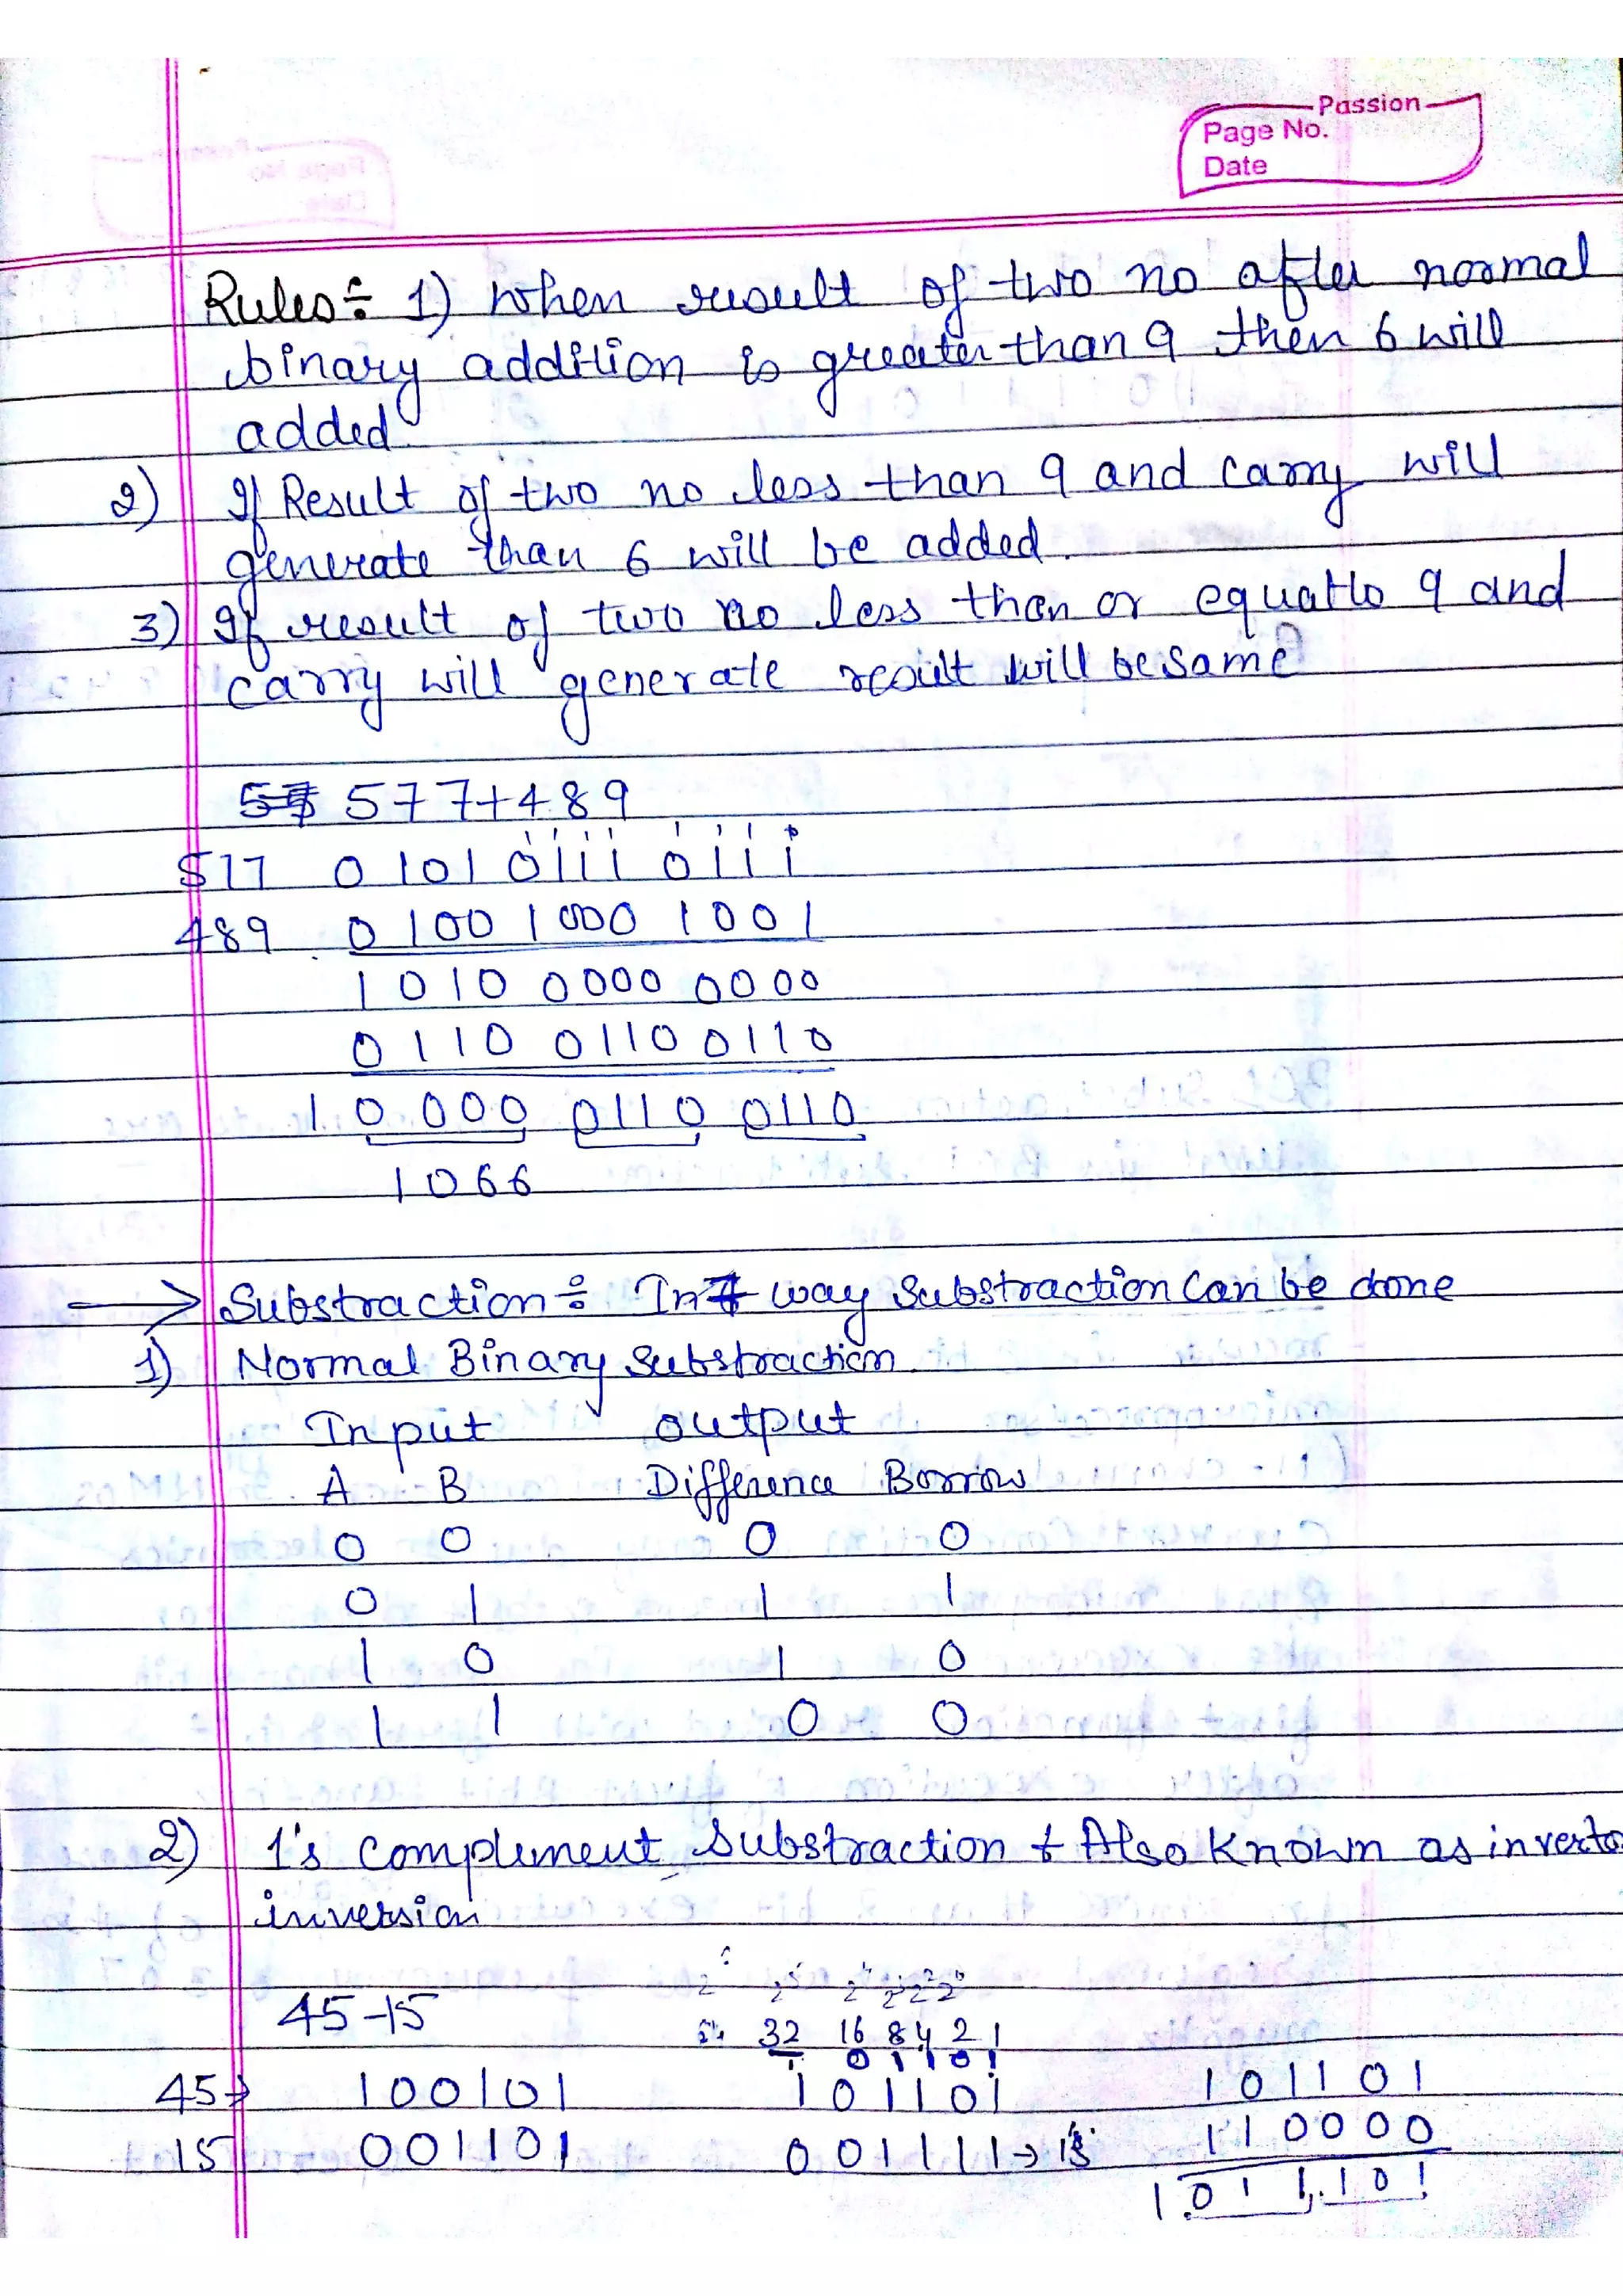 Passion
Page No.
Date
Rules÷ 1) when result of two no after normal
binary addition is greater than 9 then 6 will
added
2) If Result of two no less than 9 and carry will
generate than 6 will be added.
3) If result of two no less than or equal to 9 and
carry will generate result will be same
577+489
577 0101 0111 0111
489 0100 1000 1001
1010 0000 0000
0110 0110 0110
1 0000 0110 0110
1066
→ Substraction÷ In 7 way Substraction can be done
1) Normal Binary Substraction.
Input output
A B Difference Borrow
0 0 0 0
0 1 1 1
1 0 1 0
1 1 0 0
2) 1's complement Substraction ÷ Also known as
inversion
45-15
32 16 8 4 2 1
0 1 1 0 1
45→ 100101 101101 101101
15 001101 001111→15 110000
1 011101